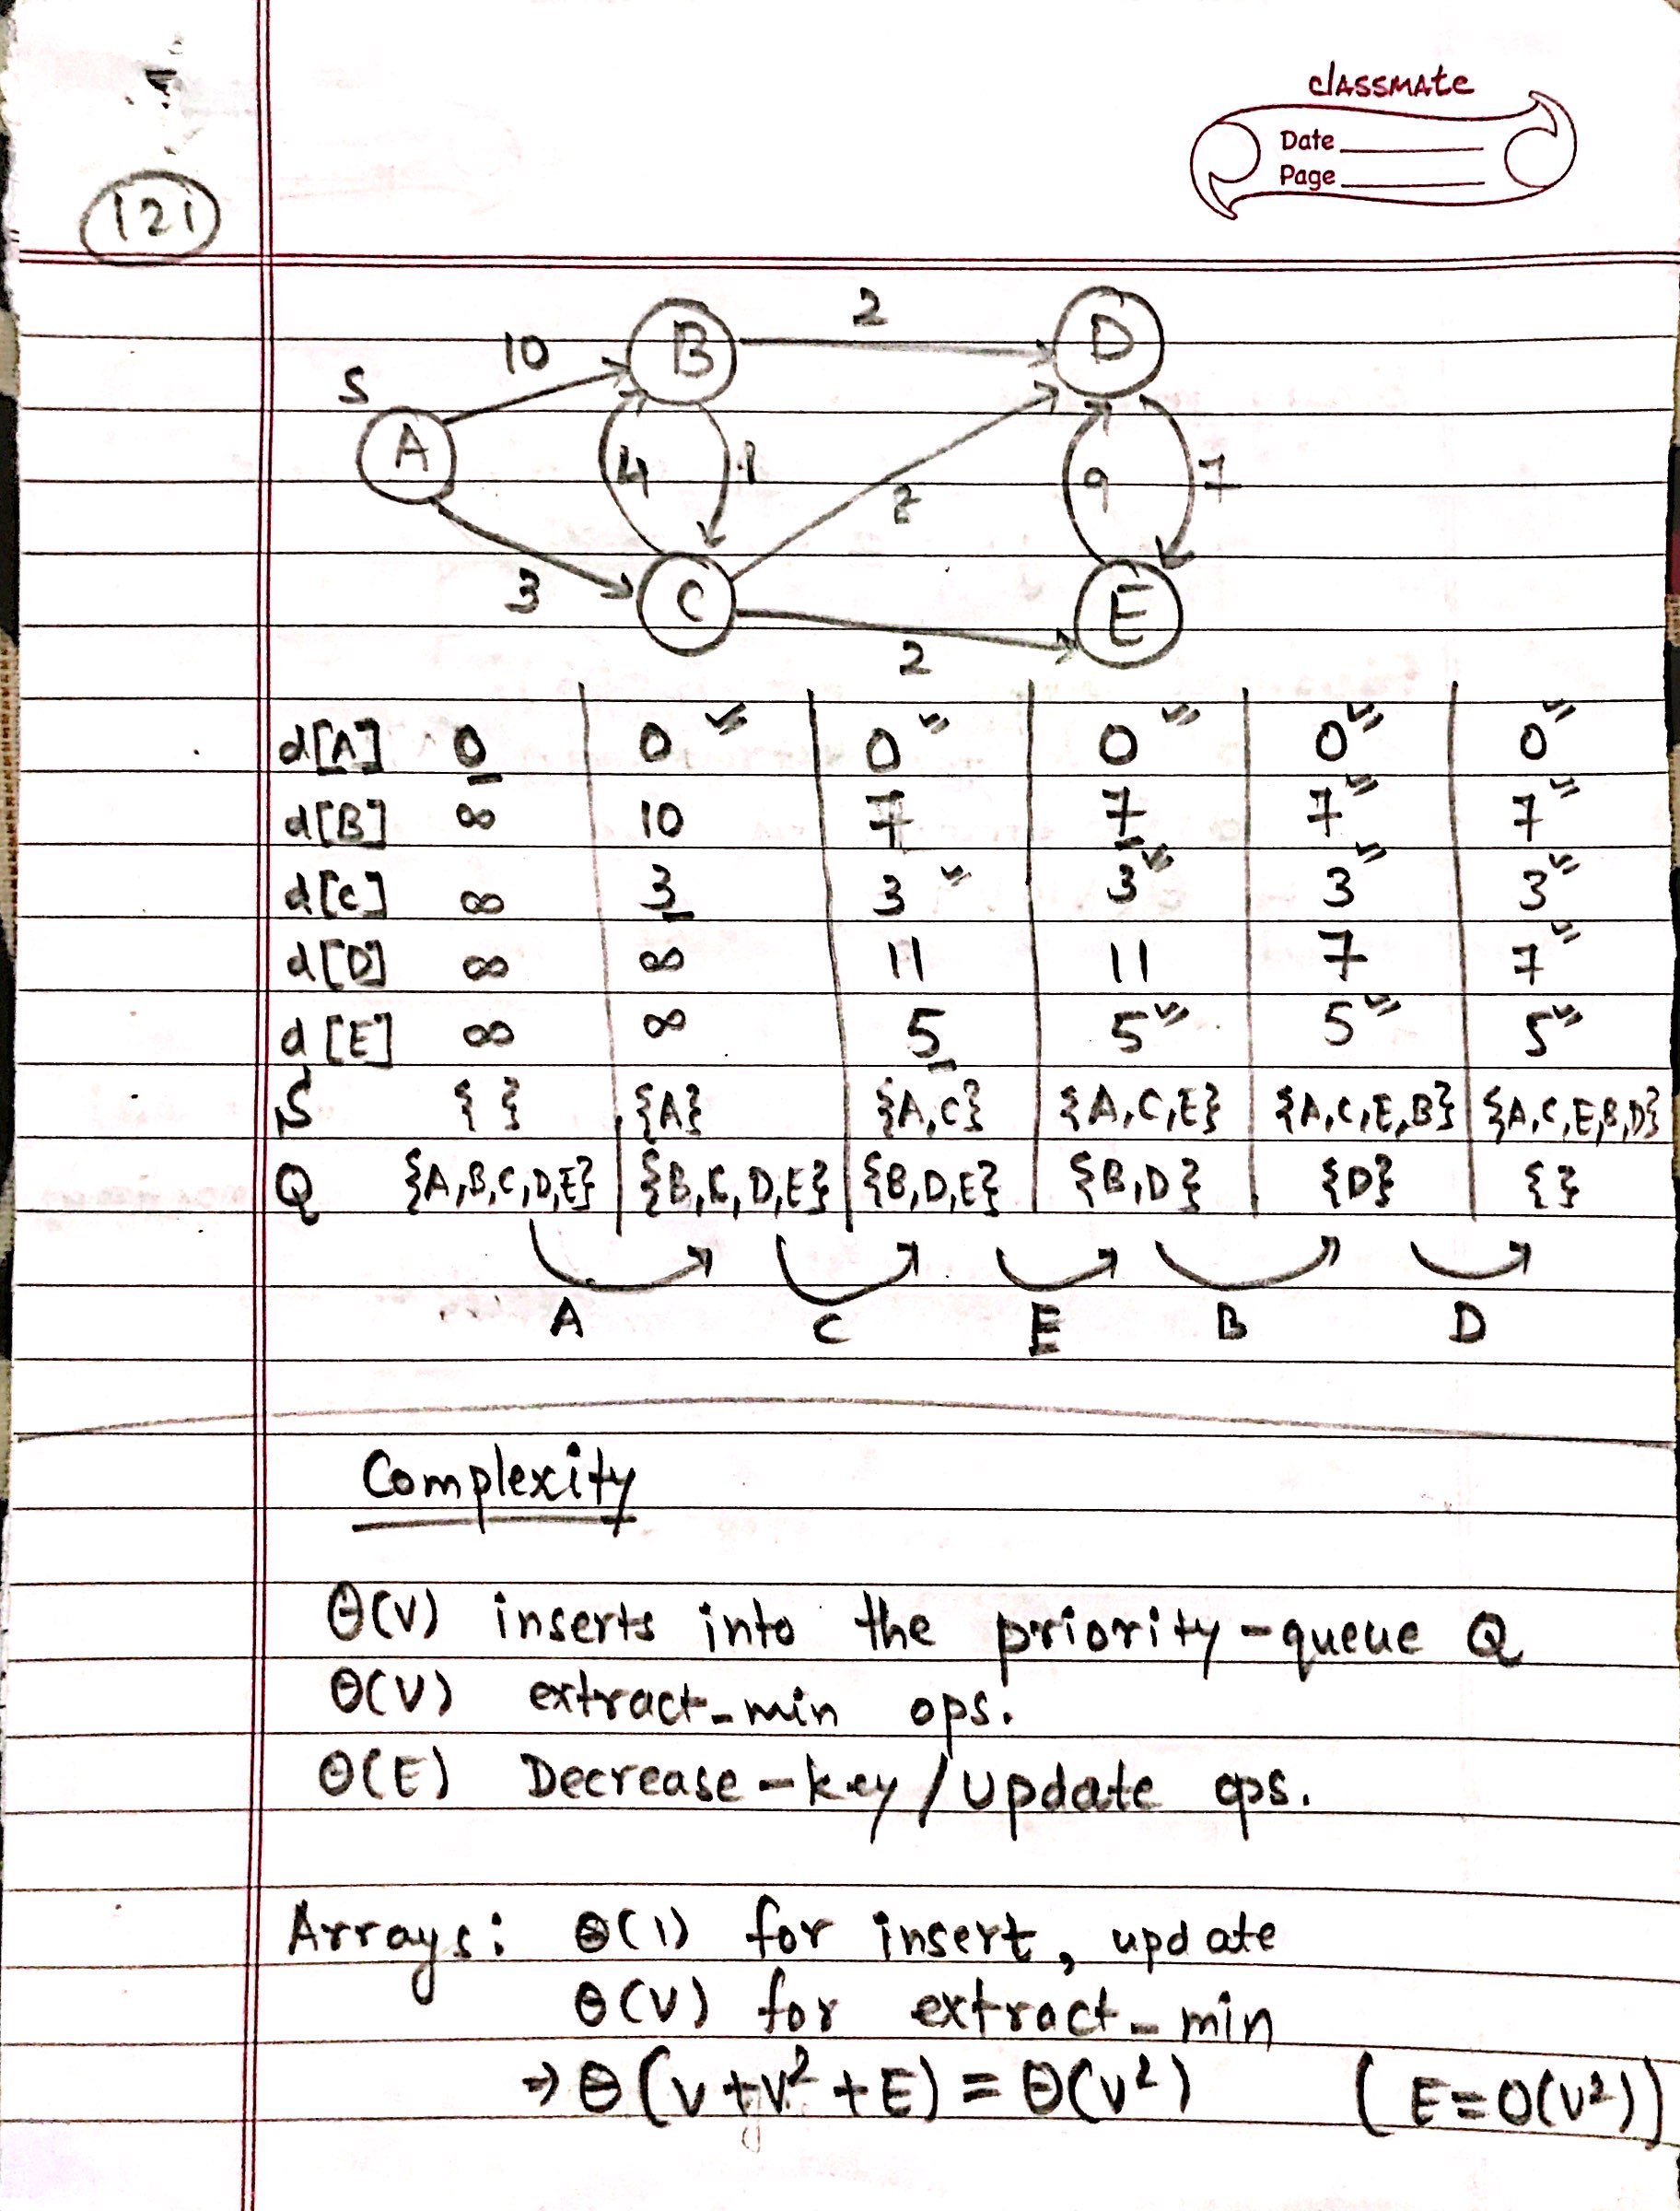 classmate
Date
Page
121
2
10 B D
S
A 4 1 9 7
8
3 C E
2
d[A] 0 0 0 0 0 0
d[B] ∞ 10 7 7 7 7
d[C] ∞ 3 3 3 3 3
d[D] ∞ ∞ 11 11 7 7
d[E] ∞ ∞ 5 5 5 5
S { } {A} {A,C} {A,C,E} {A,C,E,B} {A,C,E,B,D}
Q {A,B,C,D,E} {B,C,D,E} {B,D,E} {B,D} {D} { }
A C E B D
Complexity
Θ(V) inserts into the priority-queue Q
Θ(V) extract_min ops.
Θ(E) Decrease-key/Update ops.
Arrays: Θ(1) for insert, update
Θ(V) for extract_min
⇒ Θ(V+V²+E) = Θ(V²) (E=O(V²))